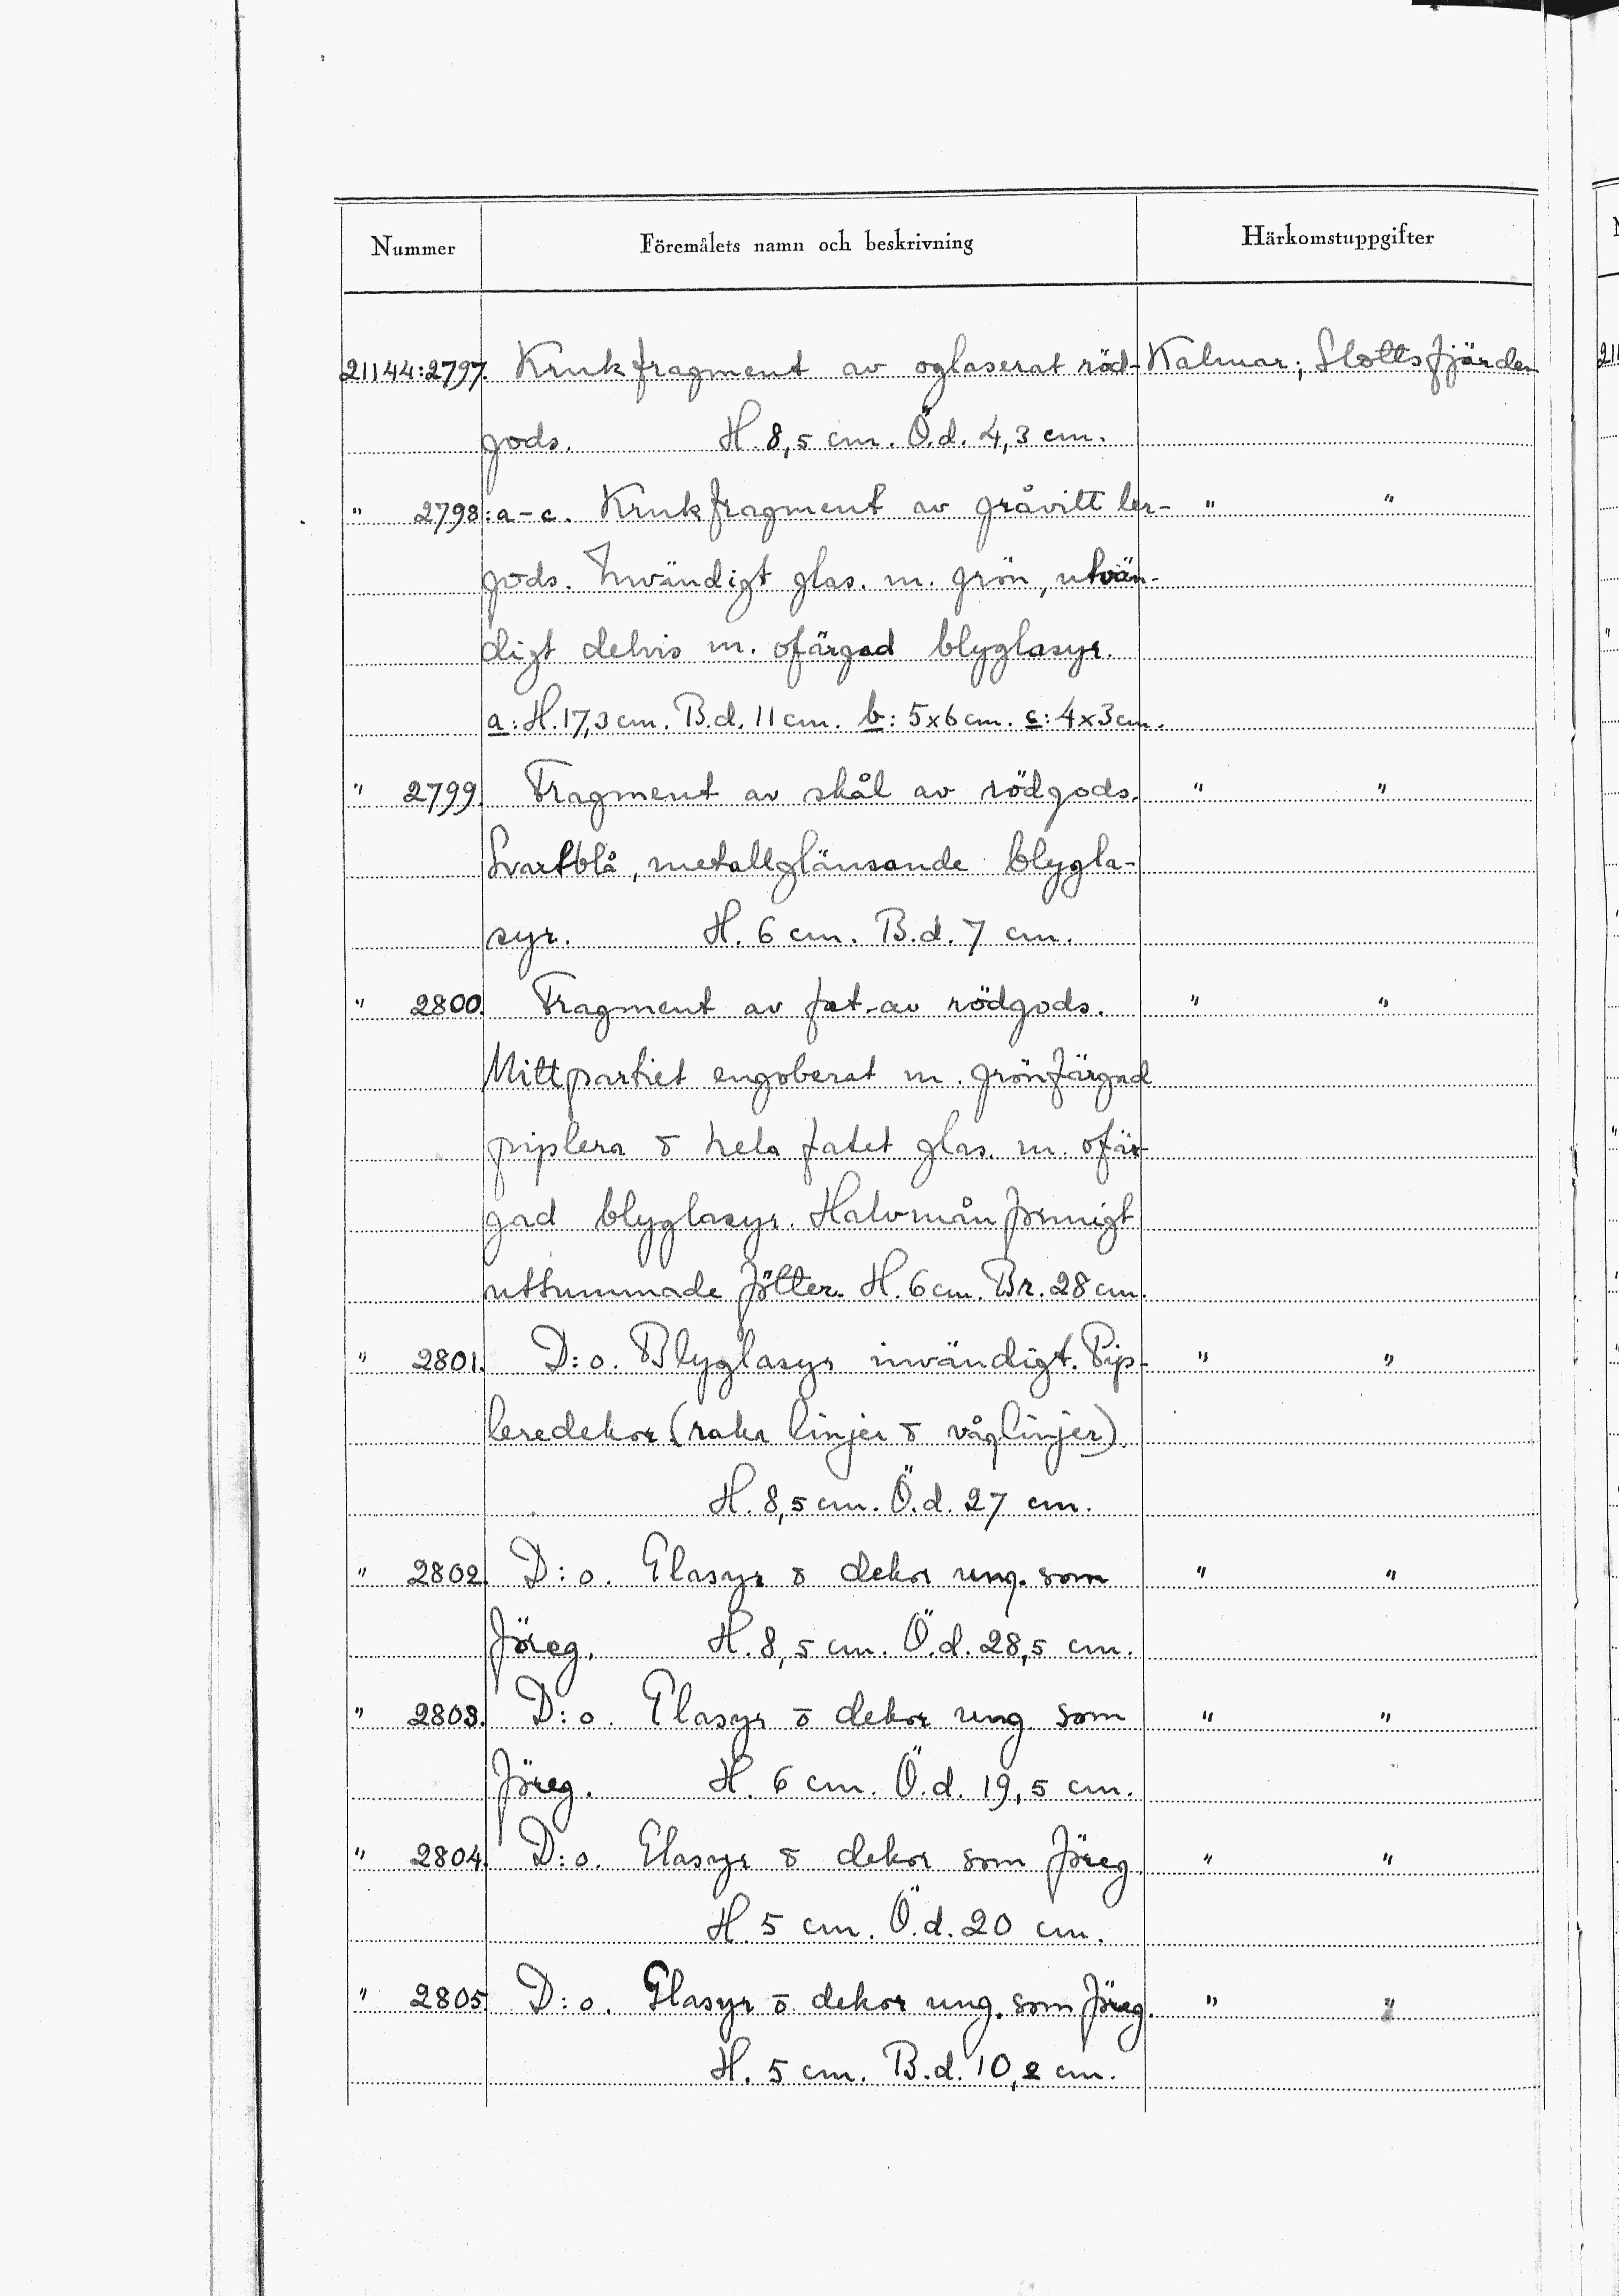 Nummer Föremålets namn och beskrivning Härkomstuppgifter
21144:2797. Krukfragment av oglaserat röd- Kalmar; Slottsfjärden
gods. H. 8,5 cm. Ö.d. 4,3 cm.
" 2798:a-c. Krukfragment av gråvitt ler- " "
gods. Invändigt glas. m. grön, utvän-
digt delvis m. ofärgad blyglasyr.
a: H. 17,3 cm. B.d. 11 cm. b: 5x6 cm. c: 4x3 cm.
" 2799. Fragment av skål av rödgods. " "
Svartblå, metallglänsande blygla-
syr. H. 6 cm. B.d. 7 cm.
" 2800. Fragment av fat av rödgods. " "
Mittpartiet engoberat m. grönfärgad
piplera o hela fatet glas. m. ofär-
gad blyglasyr. Halvmånformigt
uttummade fötter. H. 6 cm. Br. 28 cm.
" 2801. D:o. Blyglasyr invändigt. Pip- " "
leredekor (raka linjer o våglinjer).
H. 8,5 cm. Ö.d. 27 cm.
" 2802. D:o. Glasyr o dekor ung. som " "
föreg. H. 8,5 cm. Ö.d. 28,5 cm.
" 2803. D:o. Glasyr o dekor ung som " "
föreg. H. 6 cm. Ö.d. 19,5 cm.
" 2804. D:o. Glasyr o dekor som föreg. " "
H. 5 cm. Ö.d. 20 cm.
" 2805. D:o. Glasyr o dekor ung. som föreg. " "
H. 5 cm. B.d. 10,2 cm.